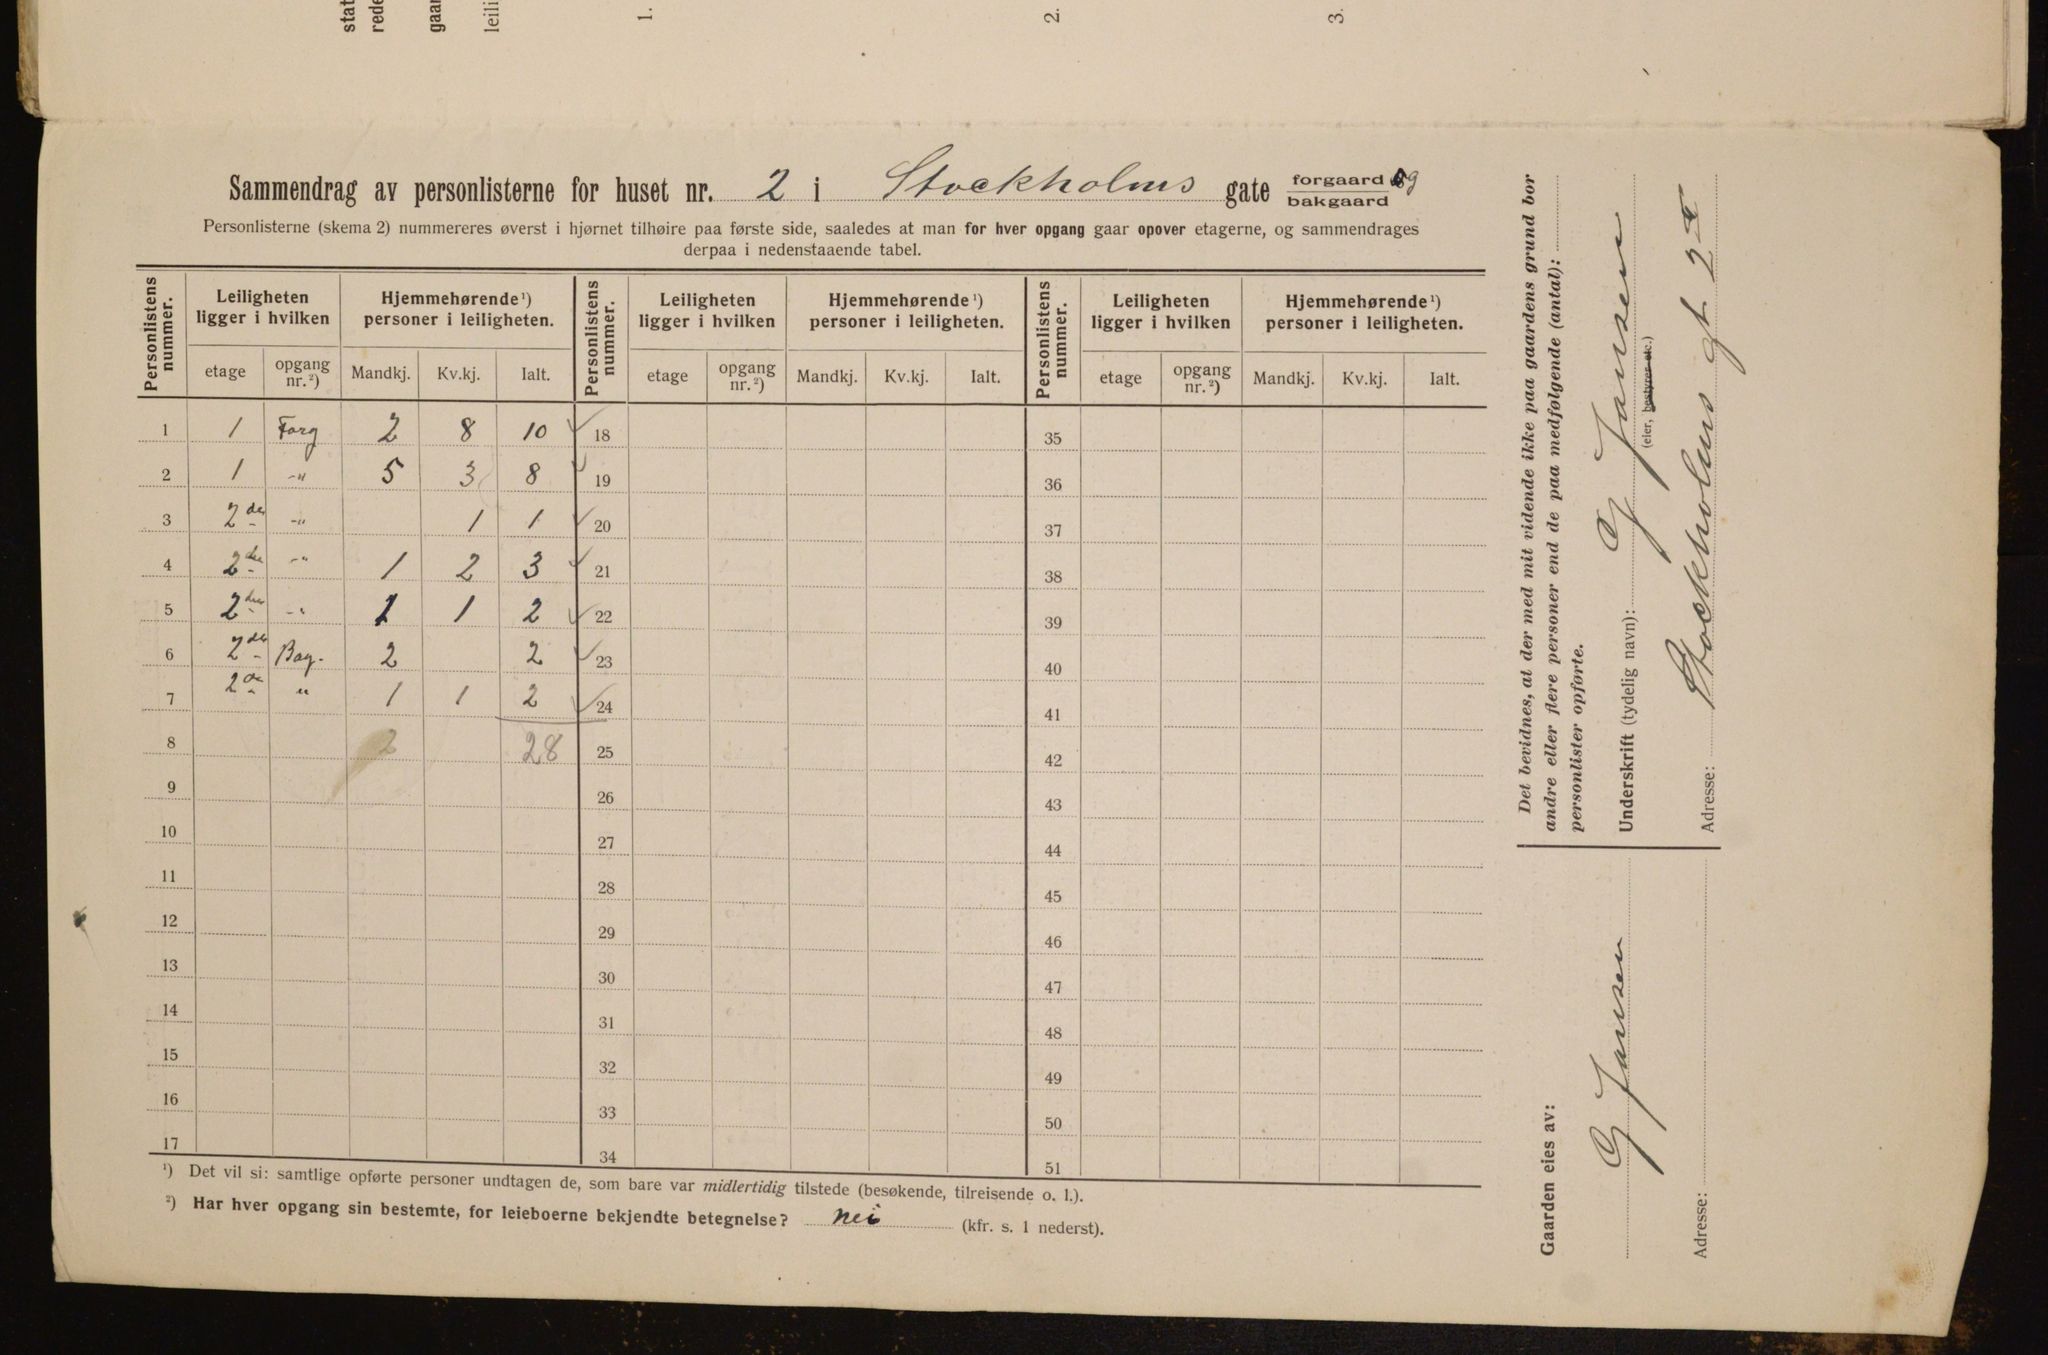 stat
rede
gaar
leili
1.
2.
3.
Sammendrag av personlisterne for huset nr. 2 i Stockholms gate forgaard og bakgaard
Personlisterne (skema 2) nummereres øverst i hjørnet tilhøire paa første side, saaledes at man for hver opgang gaar opover etagerne, og sammendrages
derpaa i nedenstaaende tabel.
Personlistens nummer. Leiligheten ligger i hvilken Hjemmehørende ¹) personer i leiligheten. Personlistens nummer. Leiligheten ligger i hvilken Hjemmehørende ¹) personer i leiligheten. Personlistens nummer. Leiligheten ligger i hvilken Hjemmehørende ¹) personer i leiligheten.
etage opgang nr. ²) Mandkj. Kv.kj. Ialt. etage opgang nr. ²) Mandkj. Kv.kj. Ialt. etage opgang nr. ²) Mandkj. Kv.kj. Ialt.
1 1 Forg 2 8 10 ✓ 18 35
2 1 -"- 5 3 8 ✓ 19 36
3 2den -"- 1 1 ✓ 20 37
4 2den -"- 1 2 3 ✓ 21 38
5 2den -"- 1 1 2 ✓ 22 39
6 2den Bag. 2 2 ✓ 23 40
7 2den " 1 1 2 ✓ 24 41
8 2 28 25 42
9 26 43
10 27 44
11 28 45
12 29 46
13 30 47
14 31 48
15 32 49
16 33 50
17 34 51
¹) Det vil si: samtlige opførte personer undtagen de, som bare var midlertidig tilstede (besøkende, tilreisende o. l.).
²) Har hver opgang sin bestemte, for leieboerne bekjendte betegnelse? nei (kfr. s. 1 nederst).
Det bevidnes, at der med mit vidende ikke paa gaardens grund bor
andre eller flere personer end de paa medfølgende (antal):
personlister opførte.
Underskrift (tydelig navn): G Jansen
(eier, bestyrer etc.)
Adresse: Stockholms gt 2
Gaarden eies av:
G Jansen
Adresse: